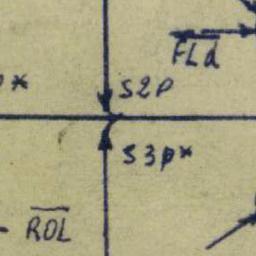 FL̅d̅
s2p
p*
s3p*
- R̅O̅L̅